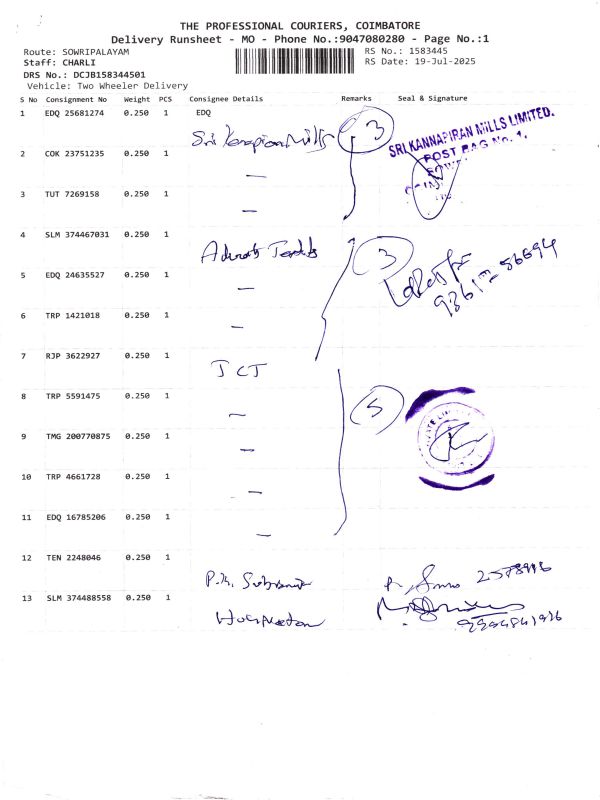 THE PROFESSIONAL COURIERS, COIMBATORE
Delivery Runsheet - MO - Phone No.:9047080280 - Page No.:1
Route: SOWRIPALAYAM RS No.: 1583445
Staff: CHARLI RS Date: 19-Jul-2025
DRS No.: DCJB158344501
Vehicle: Two Wheeler Delivery
S No Consignment No Weight PCS Consignee Details Remarks Seal & Signature
1 EDQ 25681274 0.250 1 EDQ
Mills 3 SRI KANNAPIRAN MILLS LIMITED.
POST BAG No. 1,
2 COK 23751235 0.250 1 —
3 TUT 7269158 0.250 1 —
4 SLM 374467031 0.250 1 3
5 EDQ 24635527 0.250 1 —
6 TRP 1421018 0.250 1 —
7 RJP 3622927 0.250 1 TCT
8 TRP 5591475 0.250 1 — 5
9 TMG 200770875 0.250 1 —
10 TRP 4661728 0.250 1 —
11 EDQ 16785206 0.250 1 —
12 TEN 2248046 0.250 1
P.K.
13 SLM 374488558 0.250 1